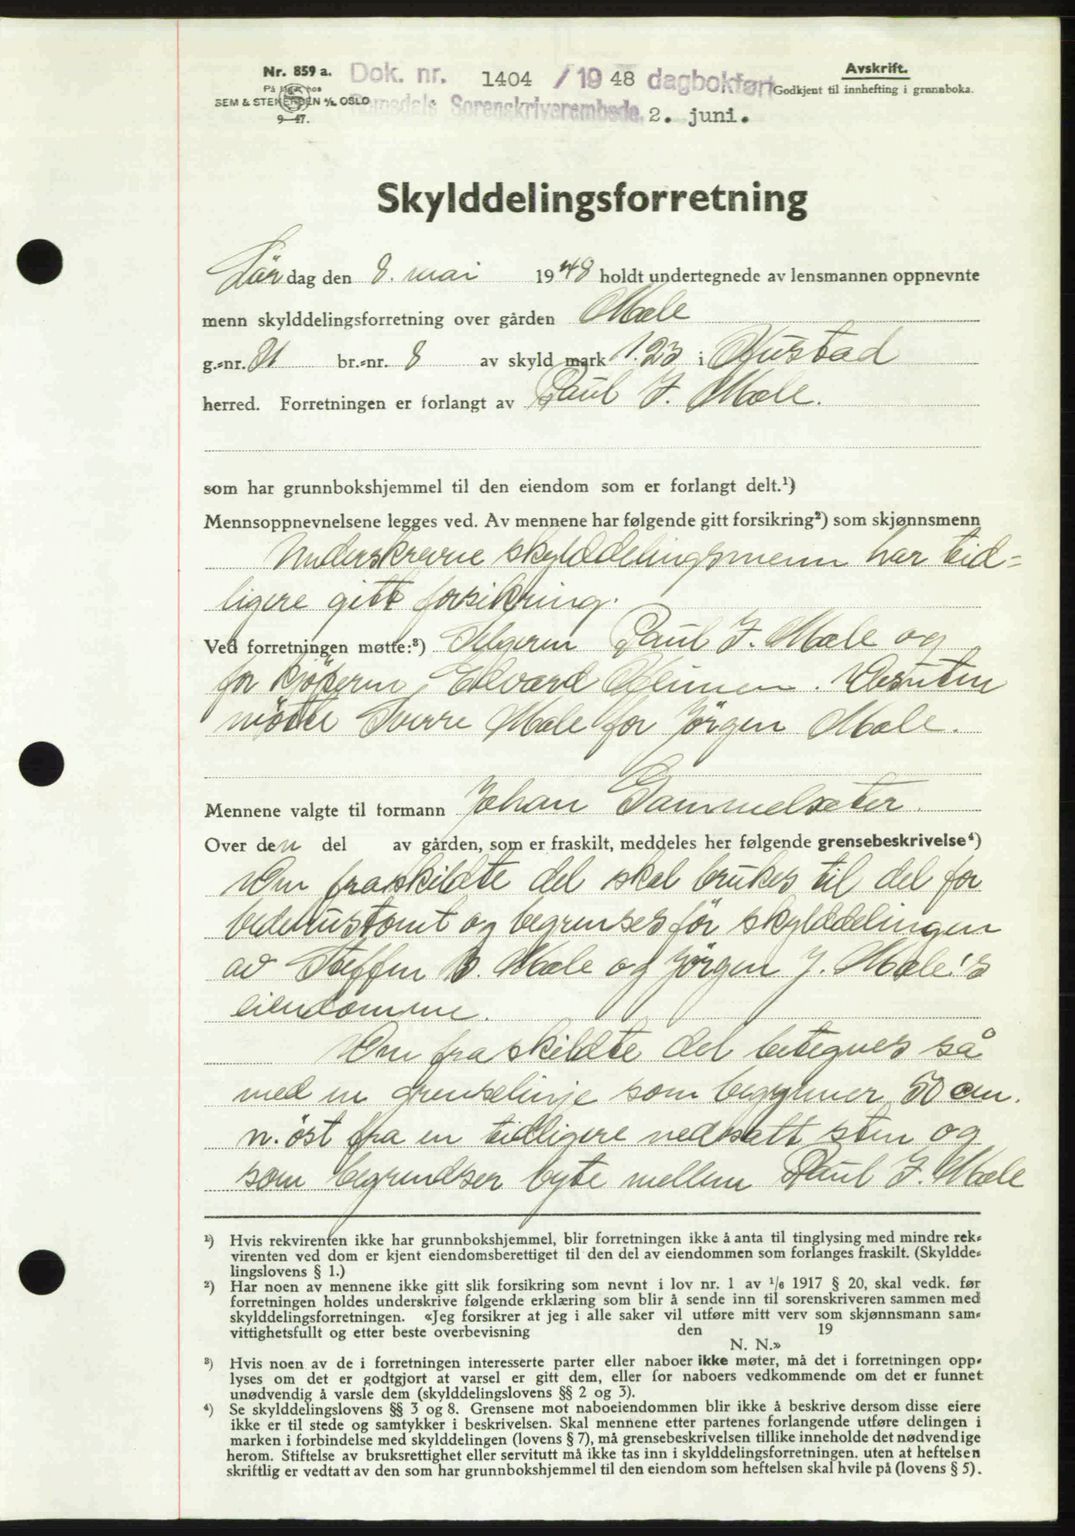 Nr. 859 a.
På lager hos
SEM & STENERSEN A/S, OSLO
9—47.
Dok. nr. 1404 / 19 48 dagbokført
Romsdals Sorenskriverembede. 2. juni.
Avskrift.
Godkjent til innhefting i grunnboka.
Skylddelingsforretning
Lørdag den 8. mai 1948 holdt undertegnede av lensmannen oppnevnte
menn skylddelingsforretning over gården Male
g.-nr. 81 br.-nr. 8 av skyld mark 1.23 i Hustad
herred. Forretningen er forlangt av Paul J. Male.
som har grunnbokshjemmel til den eiendom som er forlangt delt.¹)
Mennsoppnevnelsene legges ved. Av mennene har følgende gitt forsikring²) som skjønnsmenn
Underskrevne skylddelingsmenn har tid=
ligere gitt forsikring.
Ved forretningen møtte:³) Selgeren Paul J. Male og
for kjøperen, Edvard Heimen. Desuten
møtte Sverre Male for Jørgen Male.
Mennene valgte til formann Johan Gammelsæter.
Over den del av gården, som er fraskilt, meddeles her følgende grensebeskrivelse⁴)
Den fraskildte del skal brukes til del for
bedehustomt og begrenses før skylddelingen
av Steffen B. Male og Jørgen J. Male's
eiendomme.
Den fraskildte del betegnes så
med en grenselinje som begynner 50 cm.
n. øst fra en tidligere nedsatt sten og
som begrendser byte mellem Paul J. Male
¹) Hvis rekvirenten ikke har grunnbokshjemmel, blir forretningen ikke å anta til tinglysing med mindre rek-
virenten ved dom er kjent eiendomsberettiget til den del av eiendommen som forlanges fraskilt. (Skyldde-
lingslovens § 1.)
²) Har noen av mennene ikke gitt slik forsikring som nevnt i lov nr. 1 av ¹/₆ 1917 § 20, skal vedk. før
forretningen holdes underskrive følgende erklæring som blir å sende inn til sorenskriveren sammen med
skylddelingsforretningen. «Jeg forsikrer at jeg i alle saker vil utføre mitt verv som skjønnsmann sam-
vittighetsfullt og etter beste overbevisning den 19
N. N.»
³) Hvis noen av de i forretningen interesserte parter eller naboer ikke møter, må det i forretningen opp-
lyses om det er godtgjort at varsel er gitt dem, eller for naboers vedkommende om det er funnet
unødvendig å varsle dem (skylddelingslovens §§ 2 og 3).
⁴) Se skylddelingslovens §§ 3 og 8. Grensene mot naboeiendommen blir ikke å beskrive dersom disse eiere
ikke er til stede og samtykker i beskrivelsen. Skal mennene etter partenes forlangende utføre delingen i
marken i forbindelse med skylddelingen (lovens § 7), må grensebeskrivelsen tillike inneholde det nødvendige
herom. Stiftelse av bruksrettighet eller servitutt må ikke tas inn i skylddelingsforretningen, uten at heftelsen
skriftlig er vedtatt av den som har grunnbokshjemmel til den eiendom som heftelsen skal hvile på (lovens § 5).